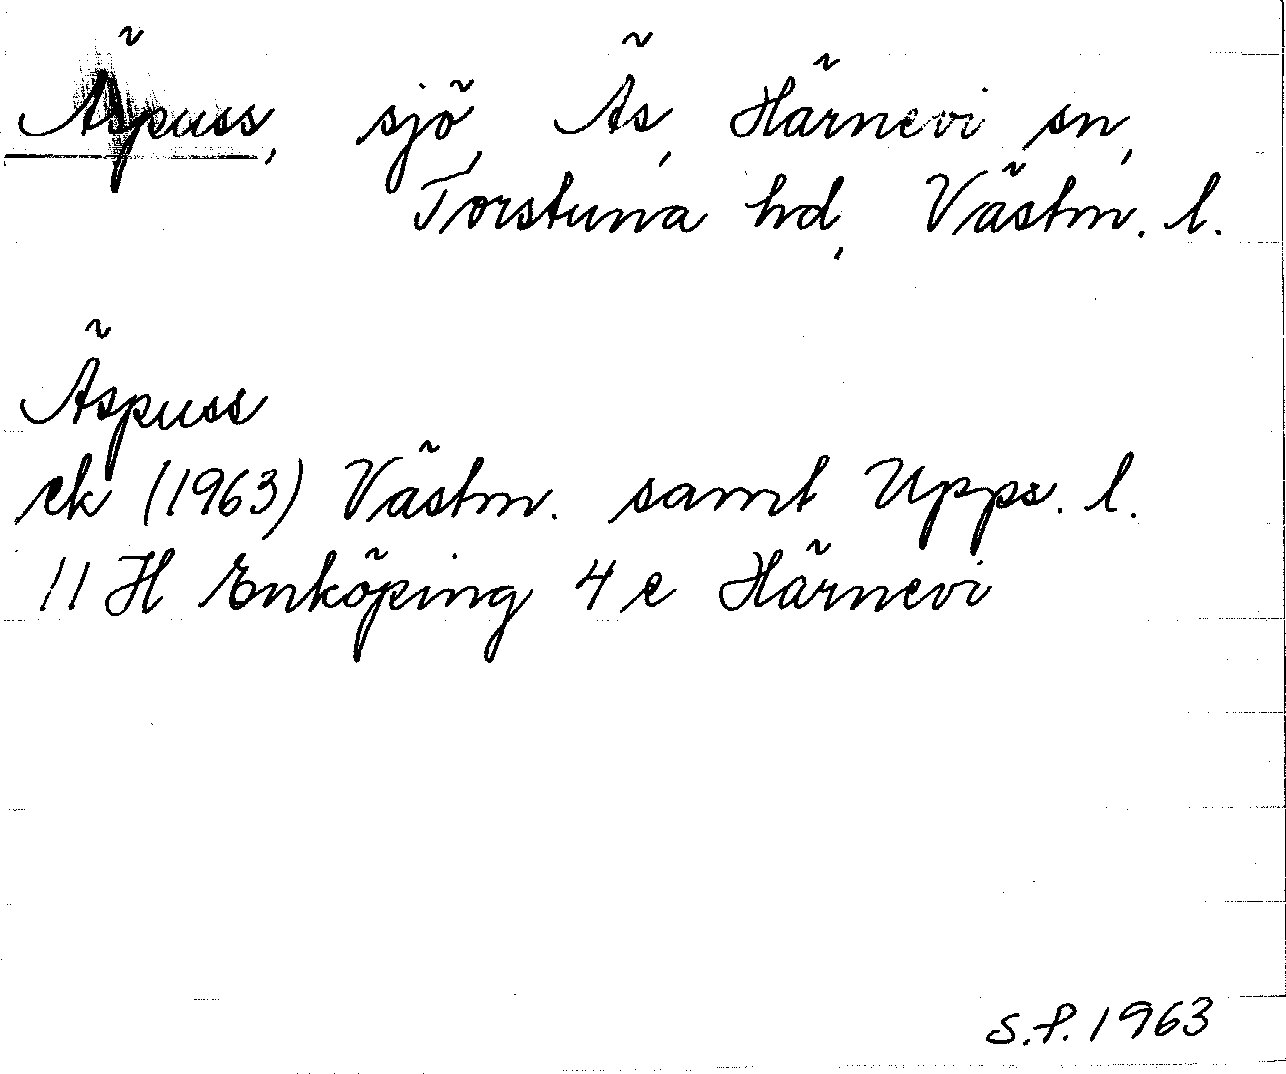 Äspuss, sjö, Äs, Härnevi sn,
Torstuna hd, Västm. l.
Äspuss
ek (1963) Västm. samt Upps. l.
11 H Enköping 4 e Härnevi
S.P. 1963